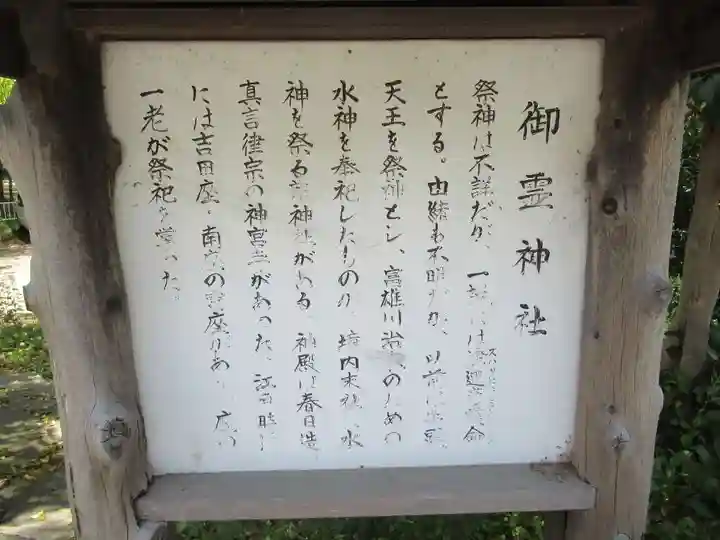 御霊神社
祭神は不詳だが、一説には 命
とする。由緒も不明だが、以前は牛頭
天王を祭神とし、高雄川治水のための
水神を奉祀したものか。境内末社に水
神を祭る 神社がある。神殿は春日造。
真言律宗の神宮寺があった。江戸時
には吉田座・南 の 座があり、 座の
一老が祭祀を営った。